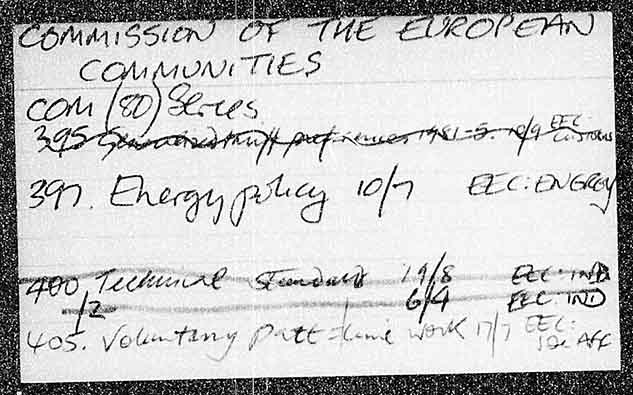 COMMISSION OF THE EUROPEAN
COMMUNITIES
COM (80) Series
395 Generalised tariff preferences 1981-5. 10/9 EEC:
CUSTOMS
397. Energy policy 10/7 EEC: ENERGY
400 Technical standards 19/8 EEC: IND
/2 6/9 EEC: IND
405. Voluntary part-time work 17/7 EEC:
Soc Aff